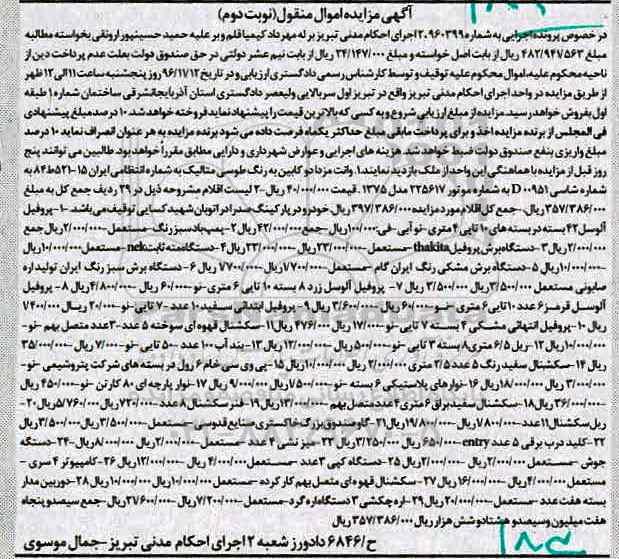 آگهی مزایده اموال منقول(نوبت دوم)
در خصوص پرونده اجرایی به شماره ۲۰۹۶۰۳۹۹ اجرای احکام مدنی تبریز بر له مهرداد کیمیا قلم و بر علیه حمید حسینپور ارونقی بخواسته مطالبه
مبلغ ۴۸۲/۹۴۷/۵۶۳ ریال از بابت اصل خواسته و مبلغ ۲۴/۱۴۷/۰۰۰ ریال از بابت نیم عشر دولتی در حق صندوق دولت بعلت عدم پرداخت دین از
ناحیه محکوم علیه، اموال محکوم علیه توقیف و توسط کارشناس رسمی دادگستری ارزیابی و در تاریخ ۹۶/۱۱/۱۲ روز پنجشنبه ساعت ۱۱ الی ۱۲ ظهر
از طریق مزایده در واحد اجرای احکام مدنی تبریز واقع در تبریز اول سربالایی ولیعصر دادگستری استان آذربایجانشرقی ساختمان شماره ۱ طبقه
اول بفروش خواهد رسید. مزایده از مبلغ ارزیابی شروع و به کسی که بالاترین قیمت را پیشنهاد نماید فروخته خواهد شد. ۱۰ درصد مبلغ پیشنهادی
فی المجلس از برنده مزایده اخذ و برای پرداخت مابقی مبلغ حداکثر یکماه فرصت داده می شود برنده مزایده به هر عنوان انصراف نماید ۱۰ درصد
مبلغ واریزی بنفع صندوق دولت ضبط خواهد شد. هزینه های اجرایی و عوارض شهرداری و دارایی مطابق مقررات خواهد بود. طالبین می توانند پنج
روز قبل از مزایده با هماهنگی این واحد از ملک بازدید نمایند. ۱- وانت مزدا دو کابین به رنگ طوسی متالیک به شماره انتظامی ایران ۱۵-۵۲۱ط۸۴ به
شماره شاسی D ۰۰۹۵۱ به شماره موتور ۲۲۵۶۱۷ مدل ۱۳۷۵. قیمت ۴۰/۰۰۰/۰۰۰ ریال-۲ لیست اقلام مشروحه ذیل در ۲۹ ردیف جمع کل به مبلغ
۳۵۷/۳۸۶/۰۰۰ریال.- جمع کل اقلام مورد مزایده ۳۹۷/۳۸۶/۰۰۰ریال. خودرو در پارکینگ صدرا در اتوبان شهید کسایی توقیف می باشد. -۱- پروفیل
آلوسل ۴۲ بسته در بسته های ۱۰ تایی ۶ متری- نو آبی -فی: ۱۰۰/۰۰۰ریال-جمع ۴۲/۰۰۰/۰۰۰ریال ۲- پمپ باد سبز رنگ- مستعمل-۲/۰۰۰/۰۰۰ریال جمع
۲/۰۰۰/۰۰۰ریال ۳-دستگاه برش پروفیل thakita-مستعمل-۲۳/۰۰۰/۰۰۰ریال-۲۳/۰۰۰/۰۰۰ریال ۴-دستگاه مته ثابت nek- مستعمل۱۰/۰۰۰/۰۰۰ریال
-۱۰/۰۰۰/۰۰۰ریال ۵-دستگاه برش مشکی رنگ ایران گام -مستعمل-۷/۷۰۰/۰۰۰ریال-۷/۷۰۰/۰۰۰ریال ۶- دستگاه برش سبز رنگ ایران تولید اره
صابونی مستعمل ۳/۵۰۰/۰۰۰ریال ۳/۵۰۰/۰۰۰ ریال ۷- پروفیل آلوسل زرد ۸ بسته ۱۰ تایی ۶ متری-نو-۶۰/۰۰۰ ریال -۴/۸۰۰/۰۰۰ریال ۸- پروفیل
آلوسل قرمز ۶ عدد ۱۰تایی ۶ متری - نو-۶۰/۰۰۰ ریال -۳/۶۰۰/۰۰۰ ریال ۹-پروفیل ابتدائی سفید ۱۰ عدد -۷ تایی -نو-۲۰/۰۰۰ ریال ۷۴۰۰/۰۰۰
ریال ۱۰-پروفیل انتهائی مشکی ۴ بسته ۷ تایی -نو-۱۷/۰۰۰ ریال ۴۷۶/۰۰۰ ریال ۱۱- سکشنال قهوه ای سوخته ۵ عدد -۳عدد متصل بهم -نو-
۱۰/۰۰۰/۰۰۰ریال ۱۲-ریل ۶/۵متری ۸ بسته ۳ تایی -نو-۵۰۰/۰۰۰ریال-۱۲/۰۰۰/۰۰۰ریال ۱۳-بند آب ۱۰۰ عدد -۵۰ تایی -نو-۷/۰۰۰ ریال -۳۵/۰۰۰/۰۰۰
ریال ۱۴-سکشنال سفید رنگ ۵ عدد ۲/۵ متری ۲/۰۰۰/۰۰۰ ریال ۱۰/۰۰۰/۰۰۰ریال ۱۵-پی وی سی خام ۶ رول در بسته های شرکت پتروشیمی -نو-
۳/۰۰۰/۰۰۰ ریال -۱۸/۰۰۰/۰۰۰ریال ۱۶- نوارهای پلاستیکی ۶ بسته -نو-۱/۵۰۰/۰۰۰ریال ۹/۰۰۰/۰۰۰ ریال ۱۷-نوار پارچه ای ۸۰ کارتن -نو-۴۵۰/۰۰۰ ریال
-۳۶/۰۰۰/۰۰۰ریال ۱۸- سکشنال سفید براق ۶ متری ۴عدد متصل بهم -۱۳/۰۰۰/۰۰۰ریال ۱۹- فنر سکشنال ۸ عدد-۷۲۰/۰۰۰ ریال ۵/۷۶۰/۰۰۰ریال ۲۰-
ریل سکشنال ۱۱عدد -۱/۸۰۰/۰۰۰ریال -۱۹/۸۰۰/۰۰۰ریال ۲۱-گاوصندوق بزرگ خاکستری صنایع قدوسی -مستعمل-۳/۵۰۰/۰۰۰ریال ۳/۵۰۰/۰۰۰ریال
۲۲-کلید درب برقی ۵ عدد entry -۶۵۰/۰۰۰ ریال ۳/۲۵۰/۰۰۰ ریال ۲۳-میز نشی ۴ عدد -مستعمل-۲/۰۰۰/۰۰۰ ریال ۸/۰۰۰/۰۰۰ریال-۲۴-دستگاه
جوش -مستعمل ۲/۰۰۰/۰۰۰ریال-۲/۰۰۰/۰۰۰ریال ۲۵-دستگاه کپی ۳ عدد -مستعمل ۴/۰۰۰/۰۰۰ ریال -۱۲/۰۰۰/۰۰۰ ریال ۲۶-کامپیوتر ۴ سری -
مستعمل ۴/۰۰۰/۰۰۰ریال-۱۶/۰۰۰/۰۰۰ریال ۲۷- سکشنال قهوه ای متصل بهم کار کرده -مستعمل-۱۰/۰۰۰/۰۰۰ریال ۱۰/۰۰۰/۰۰۰ریال ۲۸-دوربین مدار
بسته هفت عدد -مستعمل-۲۰/۰۰۰/۰۰۰ریال ۲۹-اره چکشی ۳ دستگاه اره گرد-مستعمل-۷/۲۰۰/۰۰۰ریال-۲۷۶۰۰/۰۰۰ریال-جمع سیصد و پنجاه
هفت میلیون و سیصد و هشتاد و شش هزار ریال ۳۵۷/۳۸۶/۰۰۰ریال
ح/۶۸۴۶ دادورز شعبه ۲ اجرای احکام مدنی تبریز-جمال موسوی